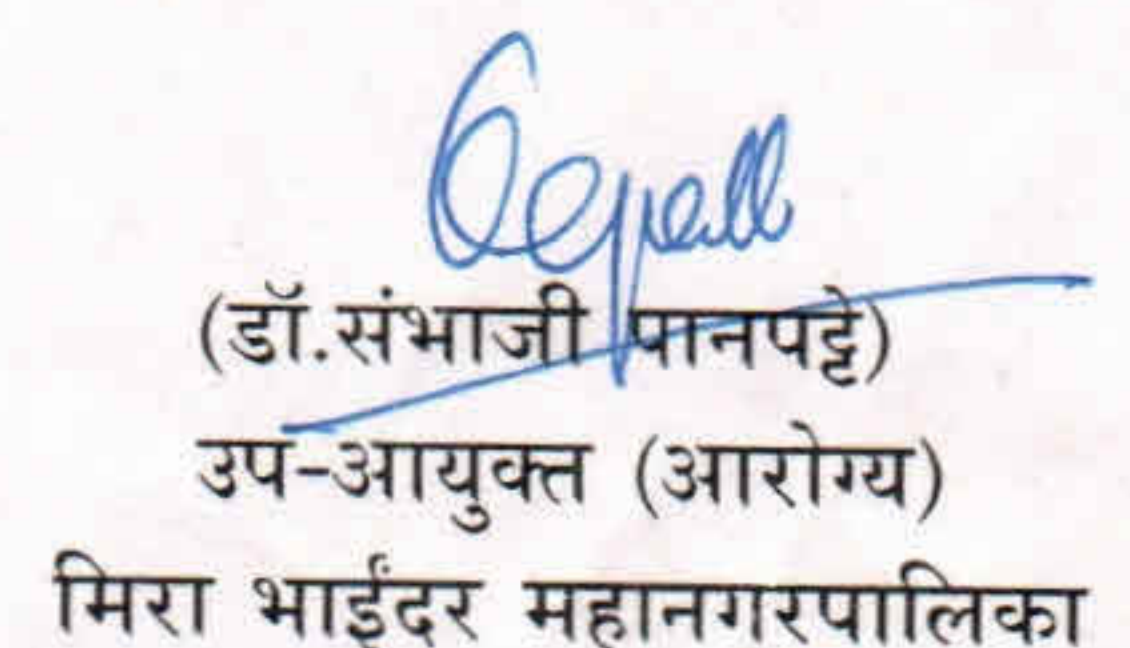 (डॉ.संभाजी पानपट्टे)
उप-आयुक्त (आरोग्य)
मिरा भाईंदर महानगरपालिका